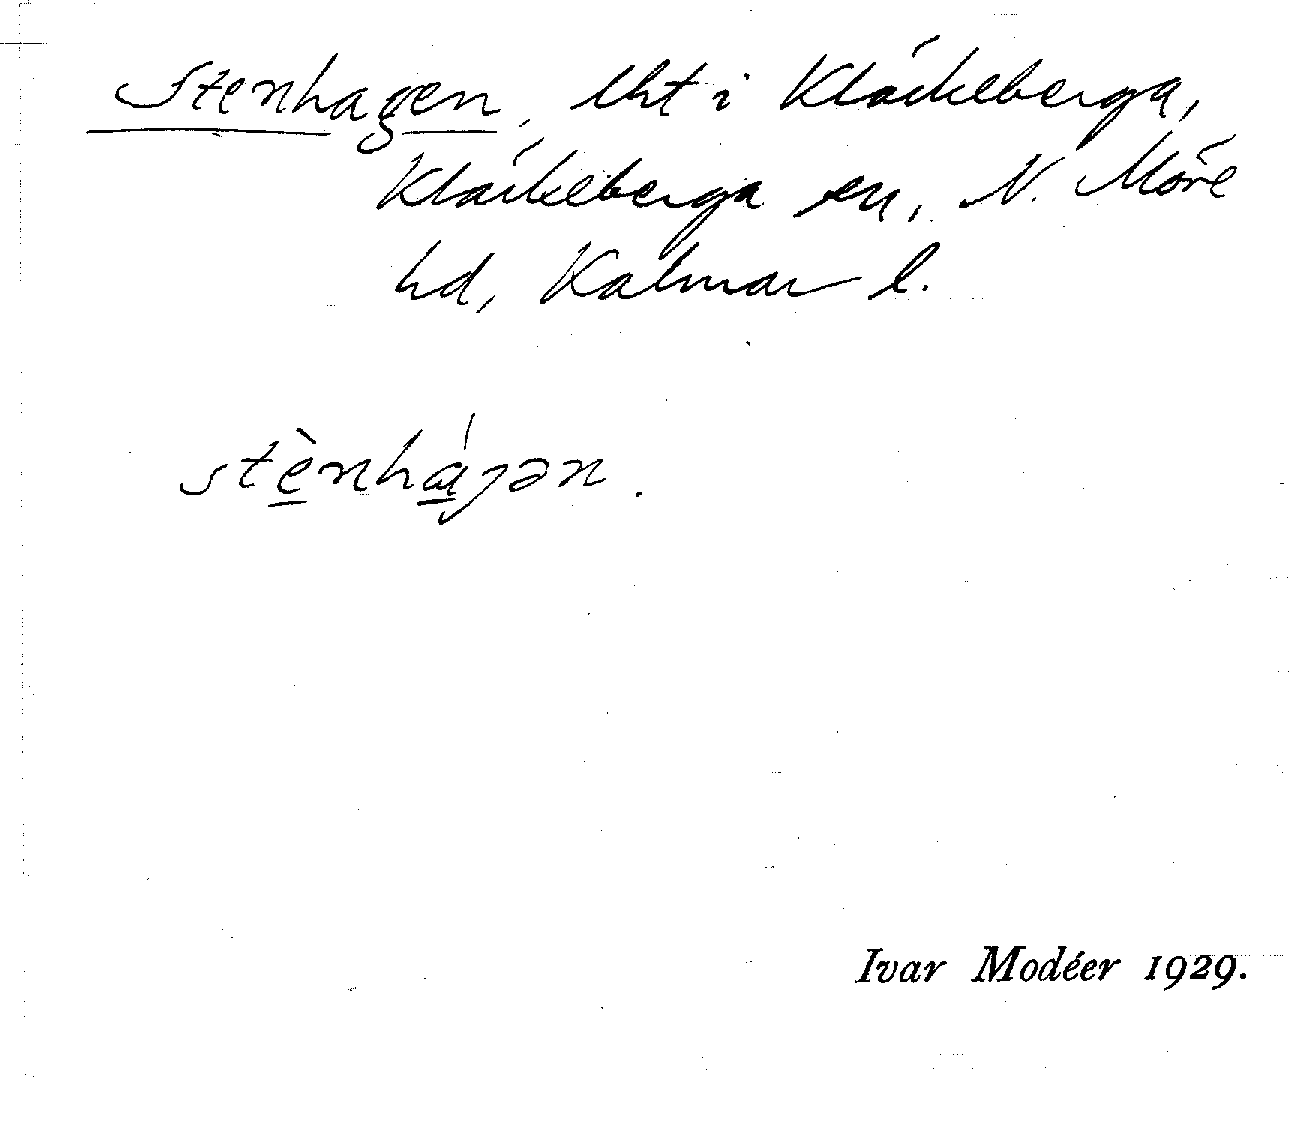 Stenhagen, lht i Kläckeberga,
Kläckeberga sn, N. Möre
hd, Kalmar l.
stènhágən.
Ivar Modéer 1929.